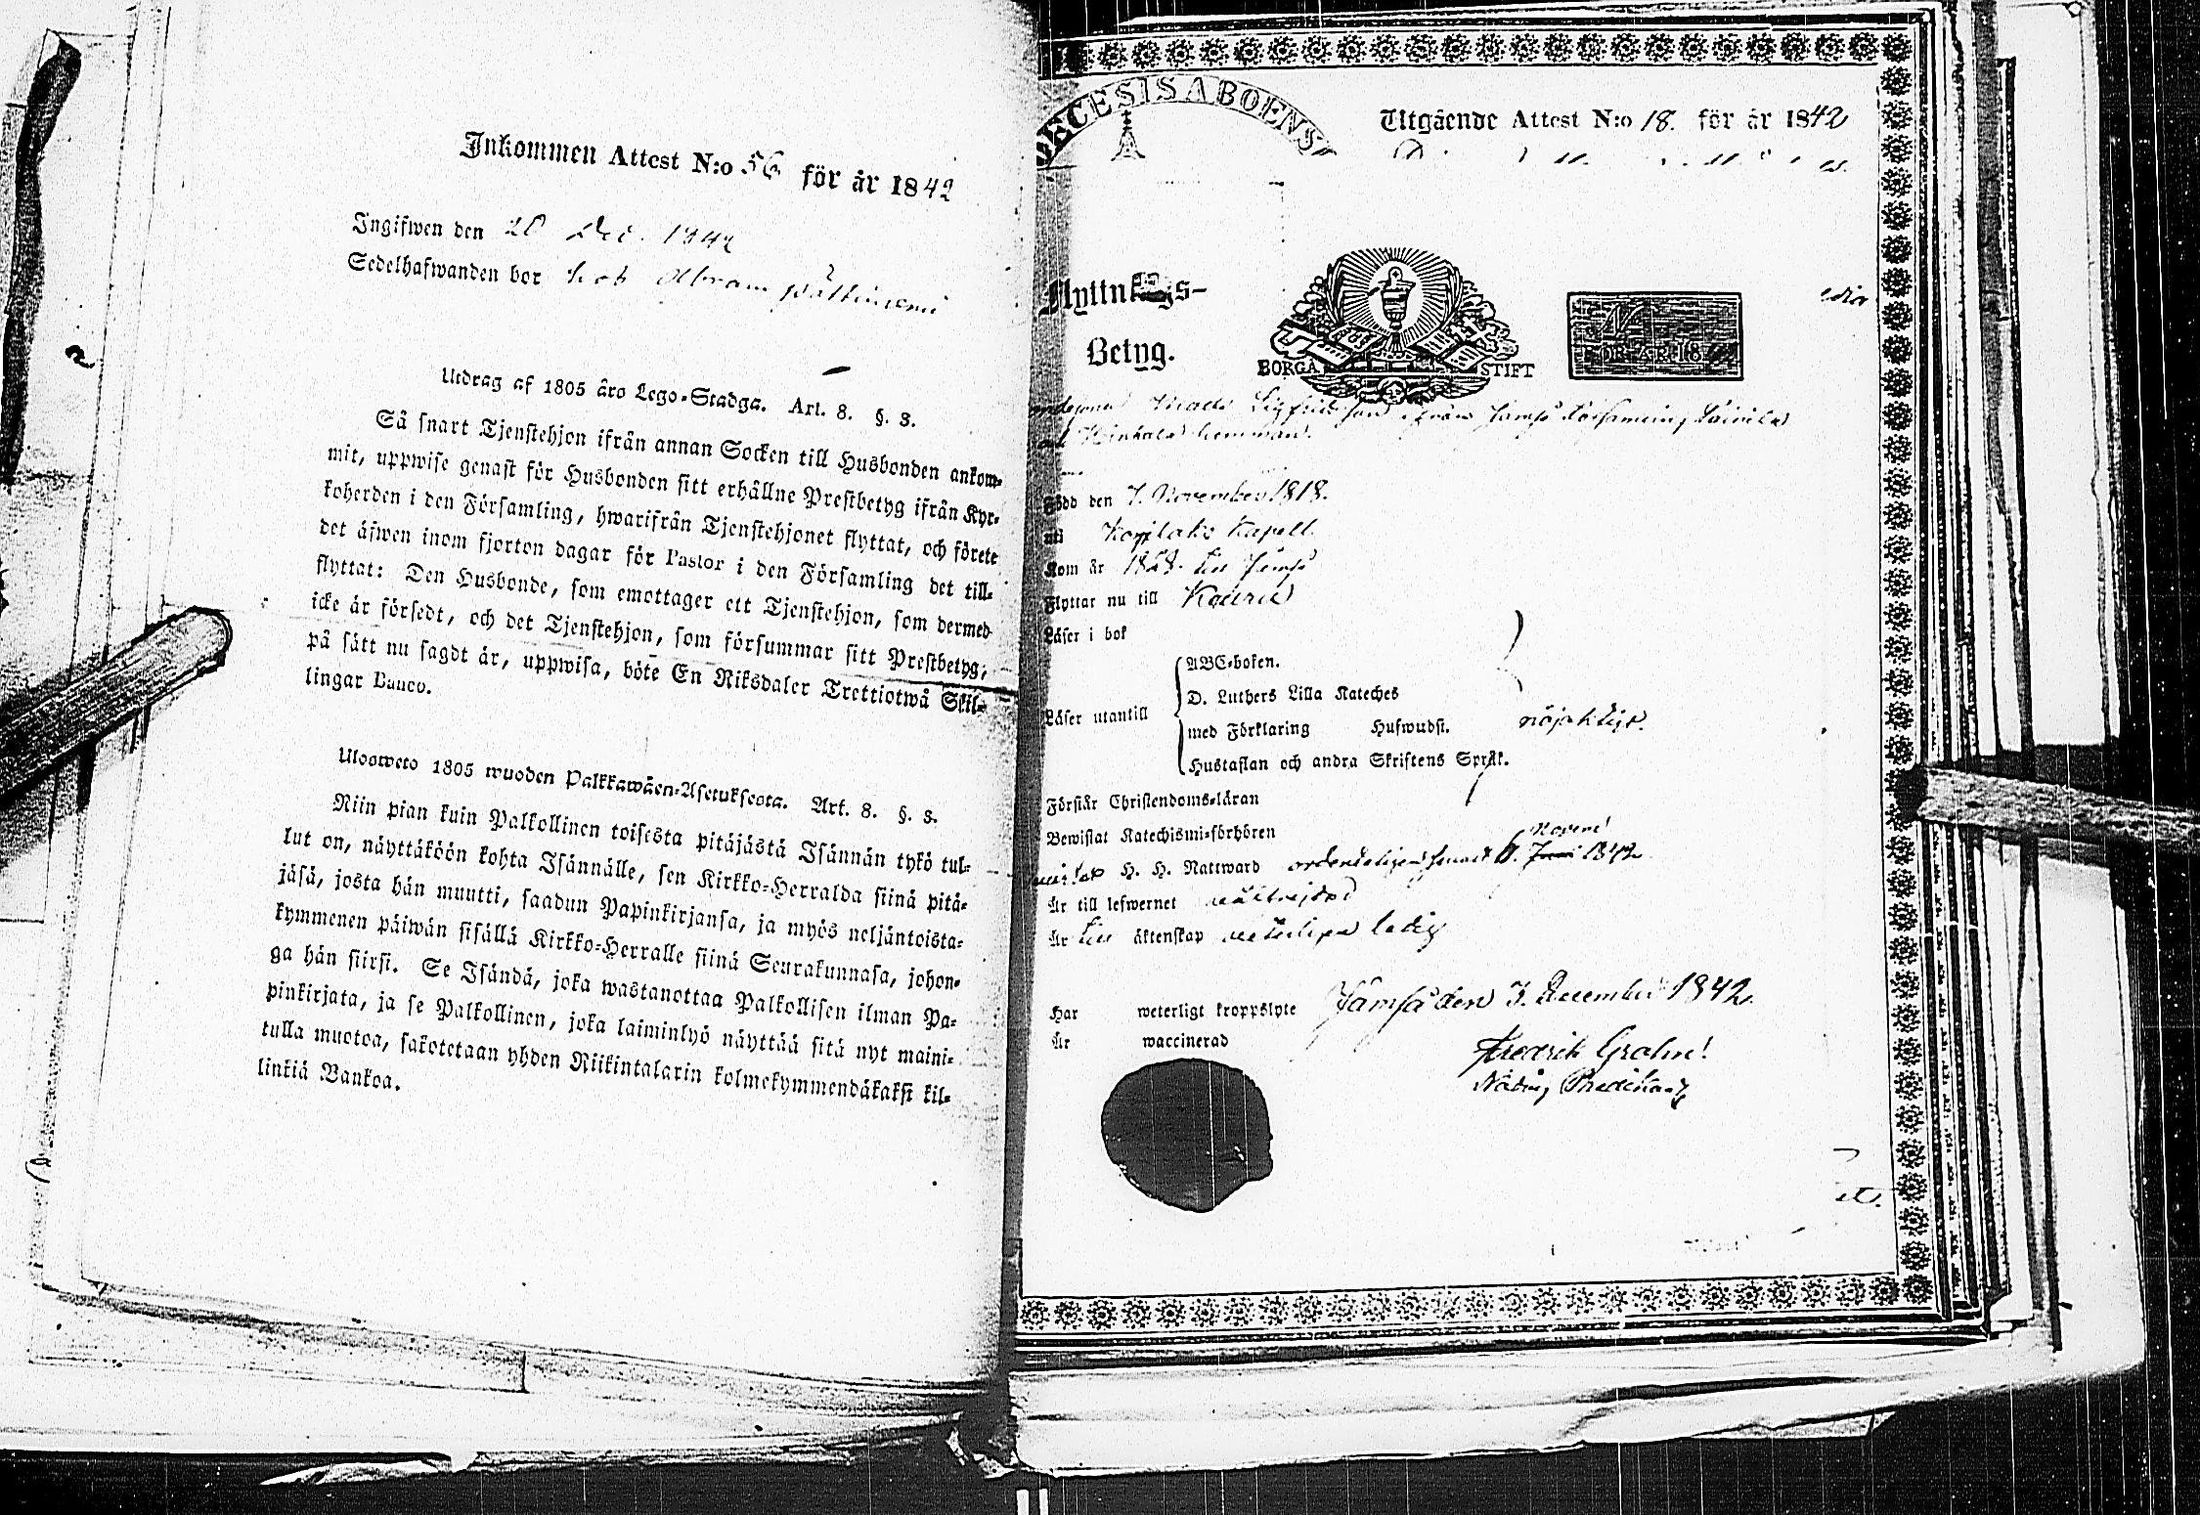 Inkommen Attest N:o 56 för år 1842
Ingifwen den 20 Dec. 1842
Sedelhafwanden bor hos Abram
Utdrag af 1805 åro Lego-Stadga. Art. 8. §. 3.
Så snart Tjenstehjon ifrån annan Socken till Husbonden ankom-
mit, uppwise genast för Husbonden sitt erhållne Prestbetyg ifrån Kyr-
koherden i den Församling, hwarifrån Tjenstehjonet flyttat, och förete
det äfwen inom fjorton dagar för Pastor i den Församling det till-
flyttat: Den Husbonde, som emottager ett Tjenstehjon, som dermed
icke är försedt, och det Tjenstehjon, som försummar sitt Prestbetyg,
på sätt nu sagdt är, uppwisa, böte En Riksdaler Trettiotwå Skil-
lingar Banco.
Ulosweto 1805 wuoden Palkkawäen-Asetuksesta. Art. 8. §. 3.
Niin pian kuin Palkollinen toisesta pitäjästä Isännän tykö tul-
lut on, näyttäköön kohta Isännälle, sen Kirkko-Herralda siinä pitä-
jäsä, josta hän muutti, saadun Papinkirjansa, ja myös neljäntoista-
kymmenen päiwän sisällä Kirkko-Herralle siinä Seurakunnasa, johon-
ga hän siirsi. Se Isändä, joka wastanottaa Palkollisen ilman Pa-
pinkirjata, ja se Palkollinen, joka laiminlyö näyttää sitä nyt maini-
tulla muotoa, sakotetaan yhden Riikintalarin kolmekymmendäkaksi kil-
linkiä Bankoa.
DECESIS ABOENS
Utgående Attest N:o 18. för år 1842
Flyttnings-
Betyg.
BORGÅ STIFT
FÖR ÅR 18
Matts Sigfridsson ifrån Jämsä församling
hemman.
Född den 7. November 1818.
uti Kapell.
Kom år 1828. till Jämsä
Flyttar nu till
Läser i bok
ABC-boken.
D. Luthers Lilla Kateches
Läser utantill
med Förklaring Hufwudst. nöjaktigt.
Hustaflan och andra Skriftens Språk.
Förstår Christendoms-läran
Bewistat Katechismi-förhören
Novemb
H. H. Nattward ordenteligen senast 6. Juni 1842
Är till lefwernet
Är till äktenskap weterligen ledig
Har weterligt kroppslyte Jämsä den 3. December 1842.
Är waccinerad
Fredrik